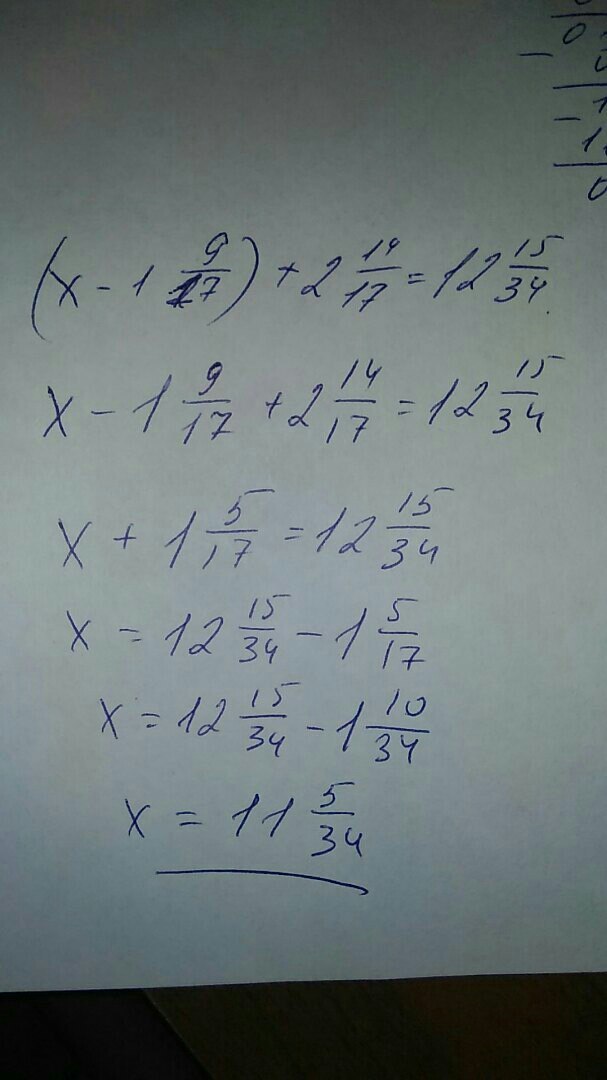 (x - 1 9/17) + 2 14/17 = 12 15/34
x - 1 9/17 + 2 14/17 = 12 15/34
x + 1 5/17 = 12 15/34
x = 12 15/34 - 1 5/17
x = 12 15/34 - 1 10/34
x = 11 5/34